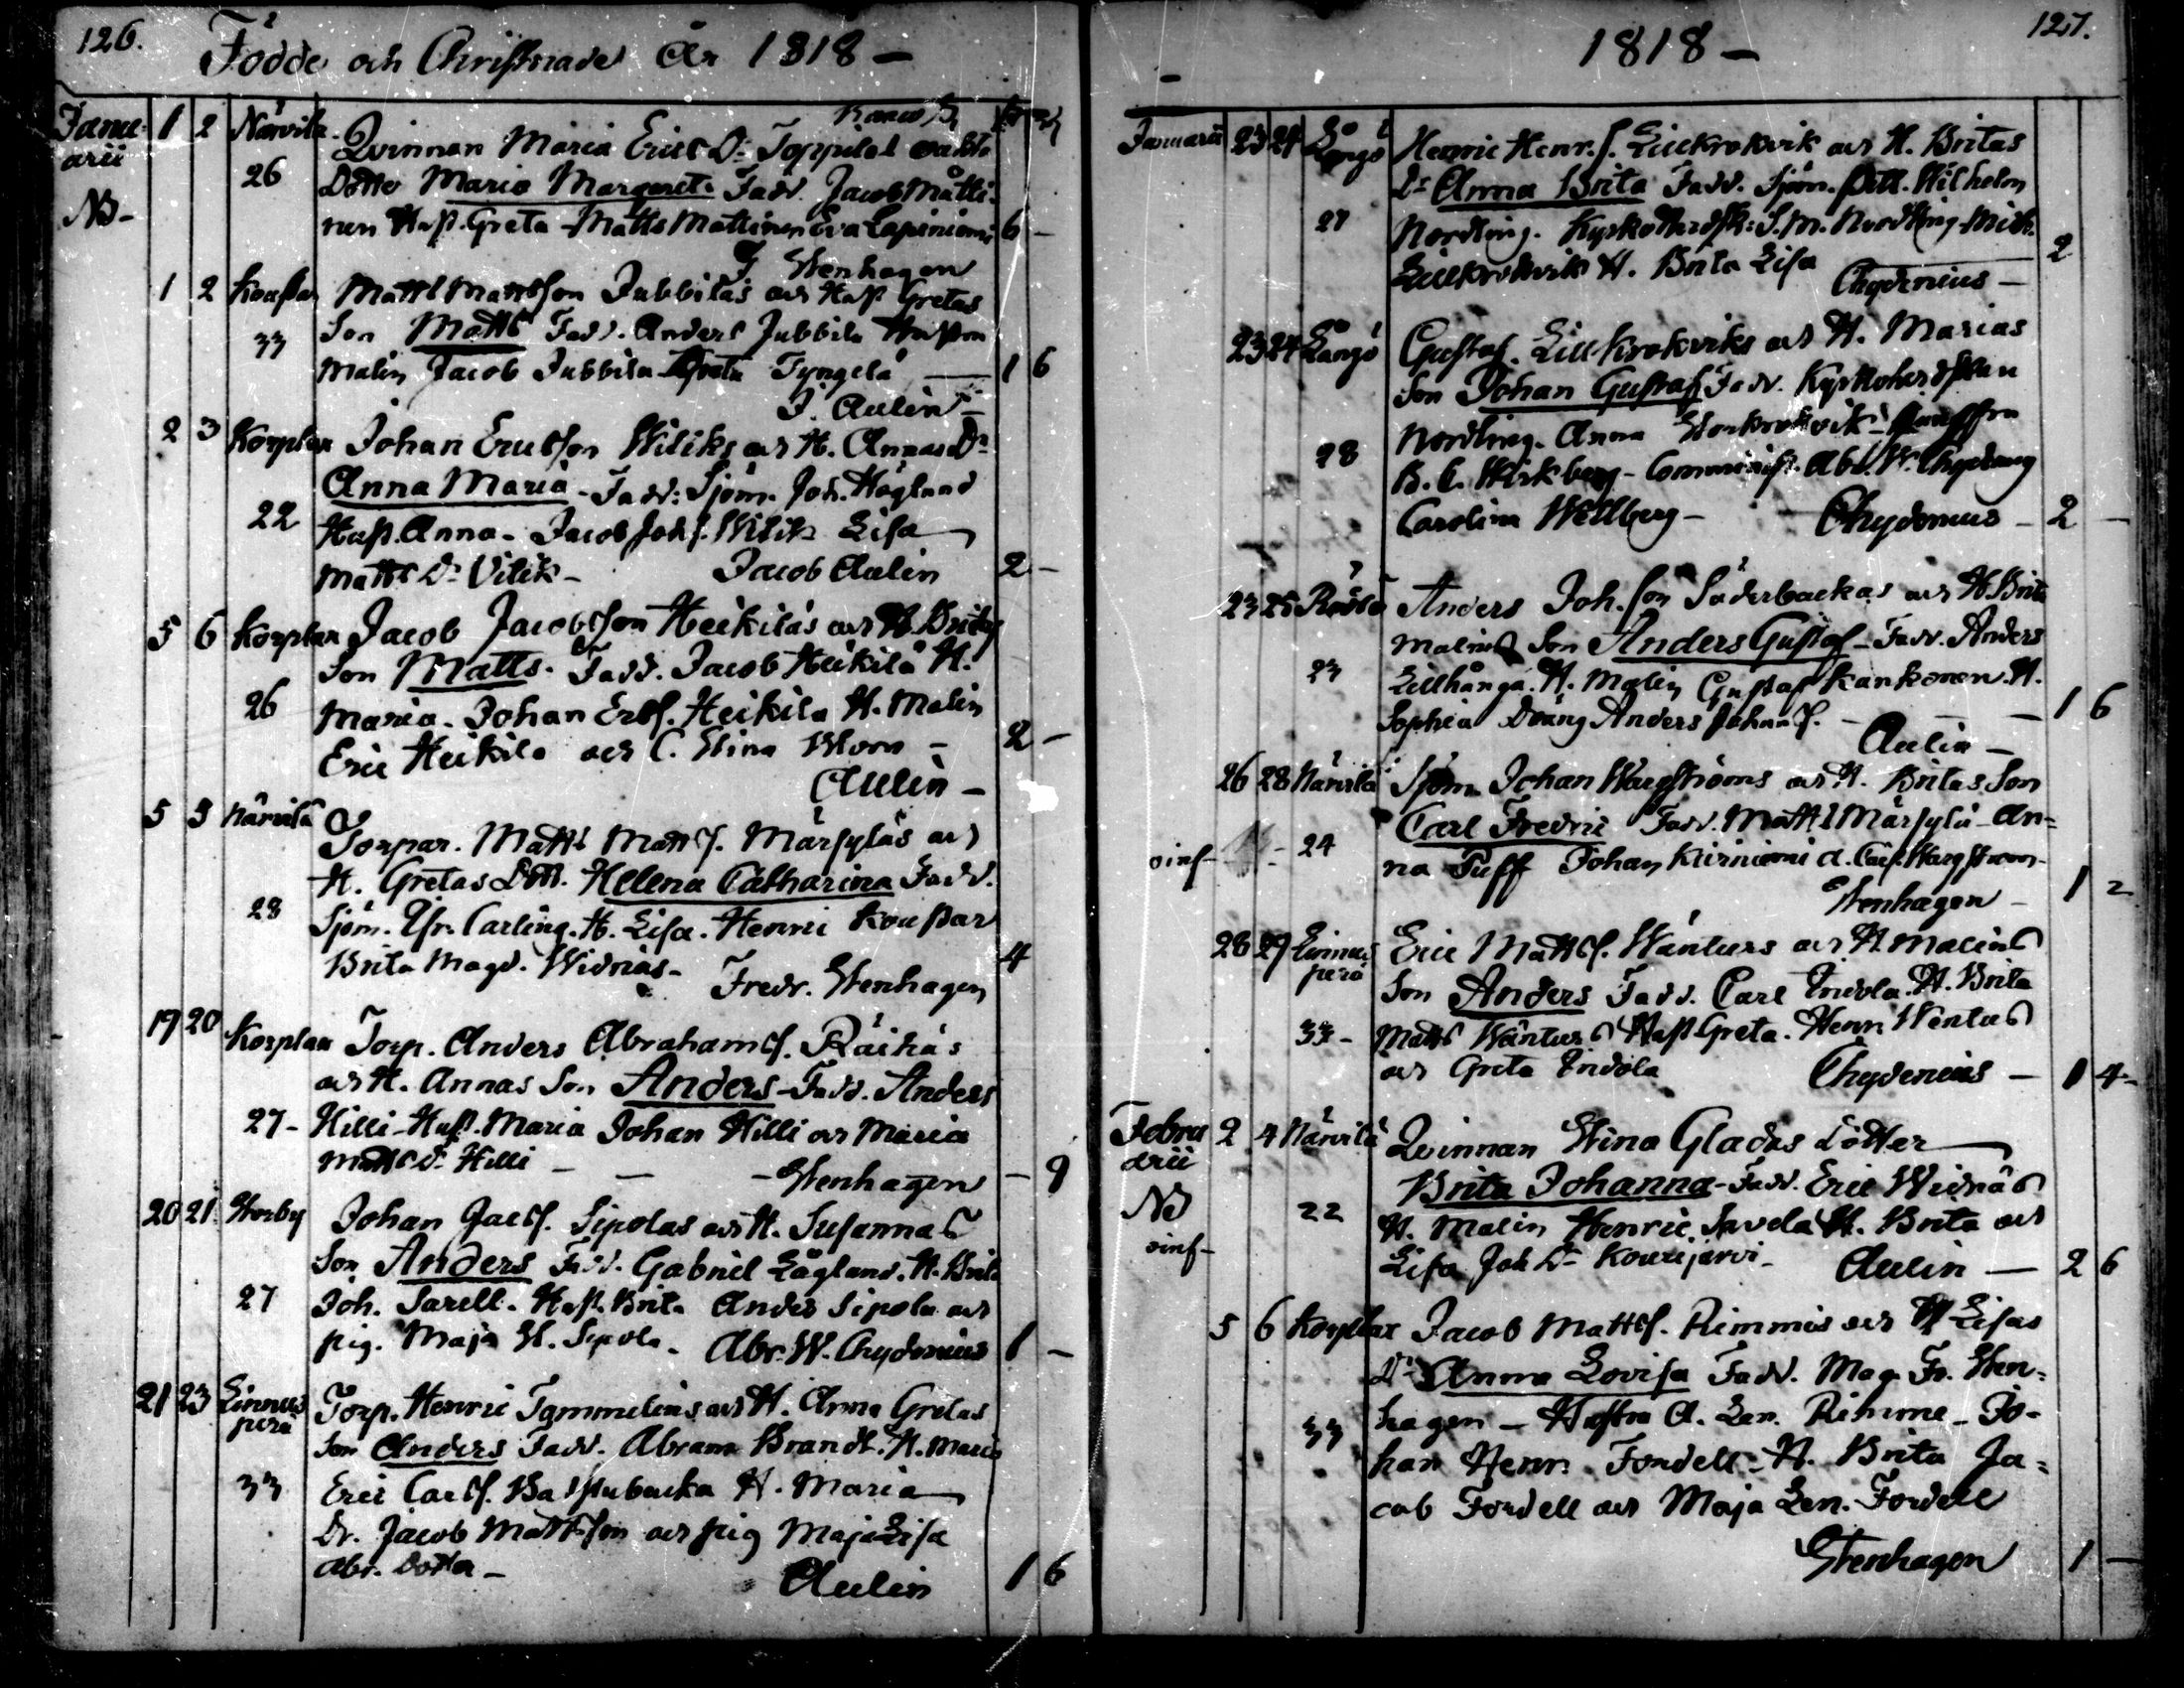 126.
Födde och Christnade År 1818 —
Janu-
arii
1 2 Närvilä
Qvinnan Maria Erics Dr Toppilas oäkta
26 Dotter Maria Margareta Fadd. Jacob Mätti-
NB-
nen Hust. Greta - Matts Mattinen Eva Lapiniemi 6 -
F Stenhagen
1 2 Koustar Matts Mattsson Jubbilas och Hust Gretas
33 Son Matts Fadd. Anders Jubbila Hustrun
Malin Jacob Jubbila Greta Tyngelä — 1 6
J. Aulin -
2 3 Korplax Johan Ericsson Wiliks och H. Annas Dr
Anna Maria - Fadd: Sjöm. Joh. Höglund
22 Hust. Anna - Jacob Joh.s. Wilik Lisa
Matts Dr Vilik - Jacob Aulin 2 -
5 6 Korplax Jacob Jacobsson Heikiläs och H. Britas
Son Matts. Fadd. Jacob Heikilä H.
26 Maria. Johan Ers s. Heikilä H. Malin
Eric Heikilä och C. Stina Blom - 2 -
Aulin -
5 9 Närvilä
Torpar. Matts Matts s. Märsyläs och
H. Gretas Dott. Helena Catharina Fadd.
28 Sjöm. Efr. Carling. H. Lisa. Henric Koustar
Brita Magd. Widnäs - 4
Fredr. Stenhagen
19 20 Korplax Torp. Anders Abrahams s. Räihäs
och H. Annas Son Anders - Fadd. Anders
27 - Hilli - Hust. Maria Johan Hilli och Maria
Matts Dr Hilli — — - Stenhagen - 9
20 21 Storby Johan Jacs s. Sipolas och H. Susannas
Son Anders Fadd. Gabriel Lågland. H. Brita
27 Joh. Sarell. Hust. Brita Anders Sipola och
pig. Maja H. Sipola. Abr. W. Chydenius 1 -
21 23 Linnus
perä
Torp. Henric Tammelins och H. Anna Gretas
Son Anders Fadd. Abram Brandt. H. Maria
33 Eric Carls s. Badstubacka H. Maria
Dr. Jacob Mattsson och pig Maja Lisa
Abr. Dotter - Aulin 1 6
1818 —
127.
Januarii 23 24 Långö Henric Henr. s. Lillkrokvik och H. Britas
Dr Anna Brita Fadd. Sjöm. Pett. Wilhelm
27 Nordling. Kyrkoherdsk: S. M. Nordling - Mich.
Lillkrokvik H. Brita Lisa 2
Chydenius —
23 24 Långö Gustaf. Lill-Krokviks och H. Marias
Son Johan Gustaf Fadd. Kyrkoherdskan
Nordling. Anna Storkrokvik
28 B. C. Wirkberg - Comminist. Abr. W. Chydenius
Carolina Wellberg - Chydenius - 2 -
23 25 Rödsö Anders Joh. son Söderbackas och H. Brita
Malins Son Anders Gustaf - Fadd. Anders
23 Lillhånga. H. Malin Gustaf Kankonen. H.
Sophia Dräng Anders Johan s. — — 1 6
Aulin —
26 28 Närvilä Sjöm. Johan Wargströms och H. Britas Son
Carl Fredric Fadd. Matts Märsylä - An=
oinf - 24 na Puff Johan Kirniemi d. Caisa Wargström -
Stenhagen - 1 2
28 29 Linnus
perä
Eric Matts s. Wänturs och H. Malins
Son Anders Fadd. Carl Indola. H. Brita
33 - Matts Wänturs Hust Greta. Henri Wentus
och Greta Indola Chydenius — 1 4 -
Febru
arii
2 4 Närvilä Qvinnan Stina Gladas dotter
Brita Johanna - Fadd. Eric Widnäs
NB
22 H. Malin Henric Savela H. Brita och
oinf -
Lisa Joh Dr Kourijärvi - Aulin — 2 6
5 6 Korplax Jacob Matts s. Rimmis och H Lisas
Dr Anna Lovisa Fadd. Mag. Fr. Sten=
hagen - Hustru A. Len. Rihime - Jo-
33
han Henr. Fordell - H. Brita Ja=
cob Fordell och Maja Len. Fordell
Stenhagen 1 —